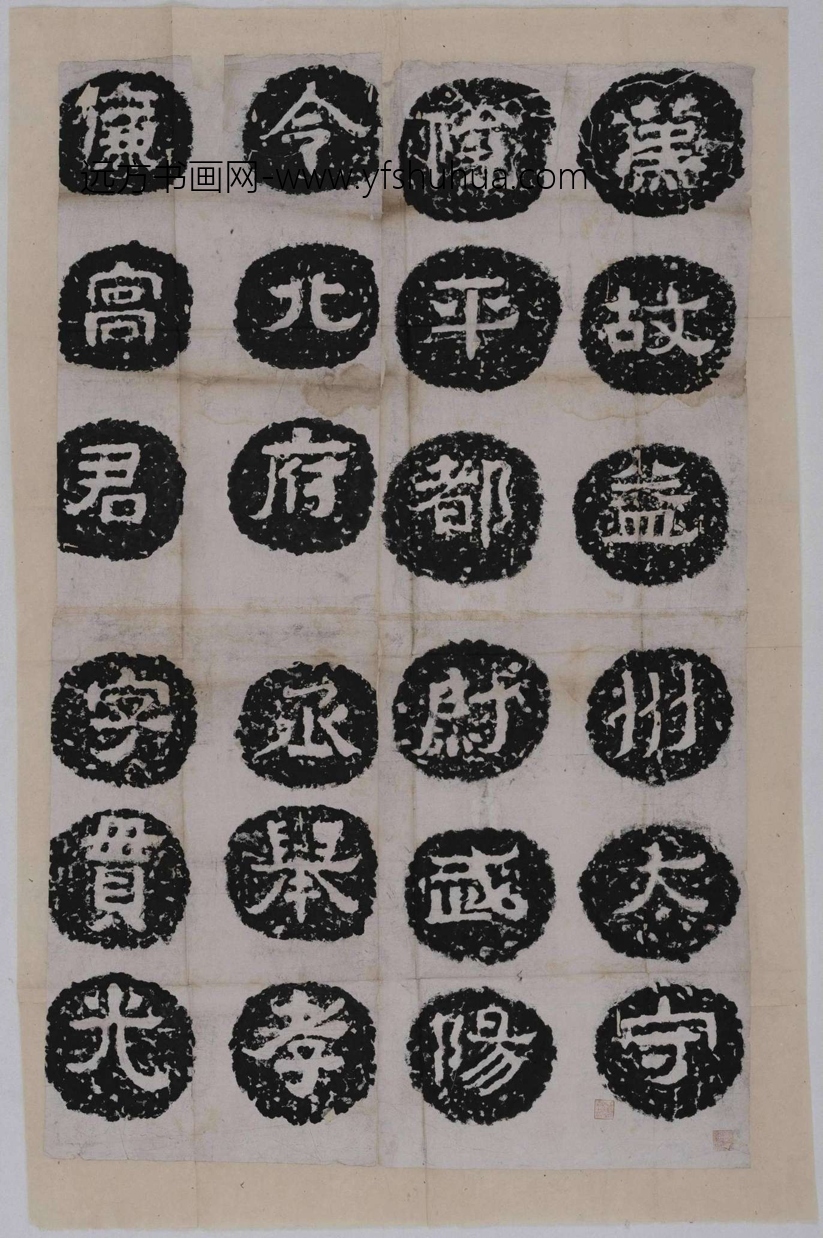 漢故益州太守
陰平都尉武陽
令北府丞舉孝
廉高君字貫光
远方书画网-www.yfshuhua.com